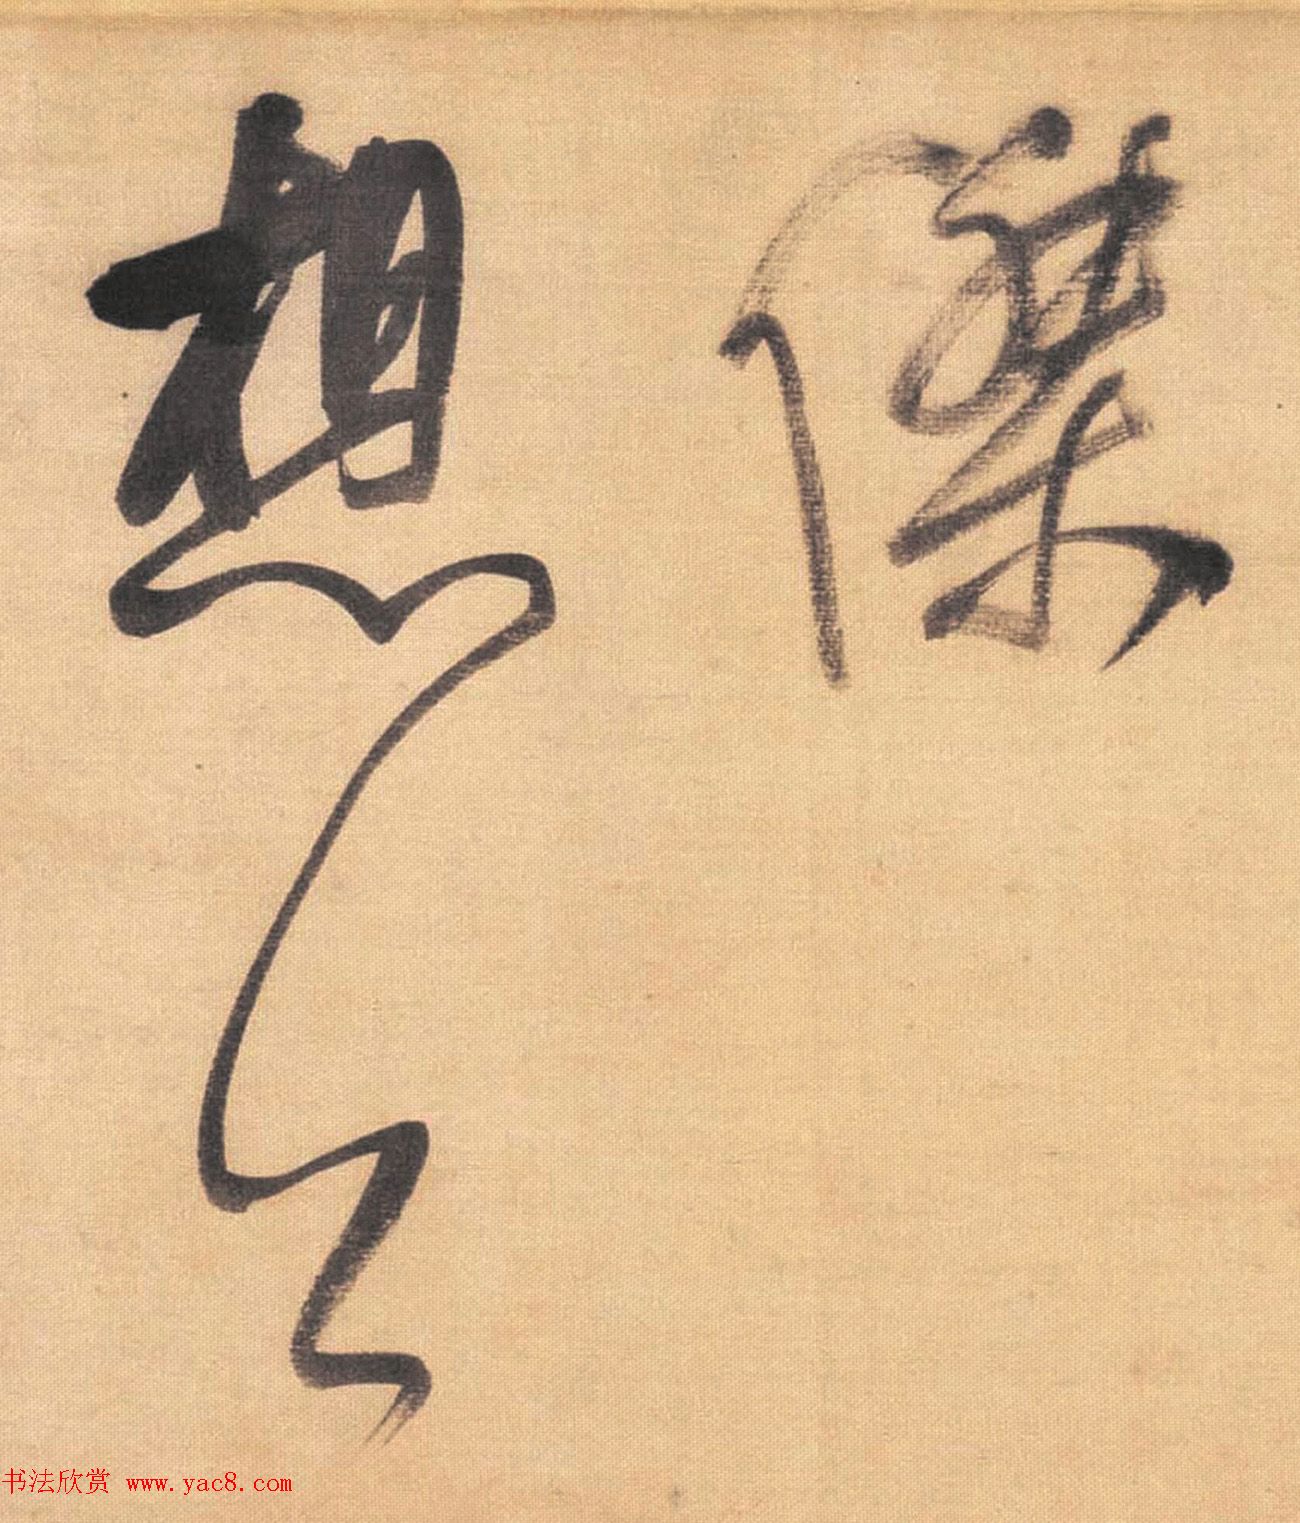 傑
想公
书法欣赏 www.yac8.com